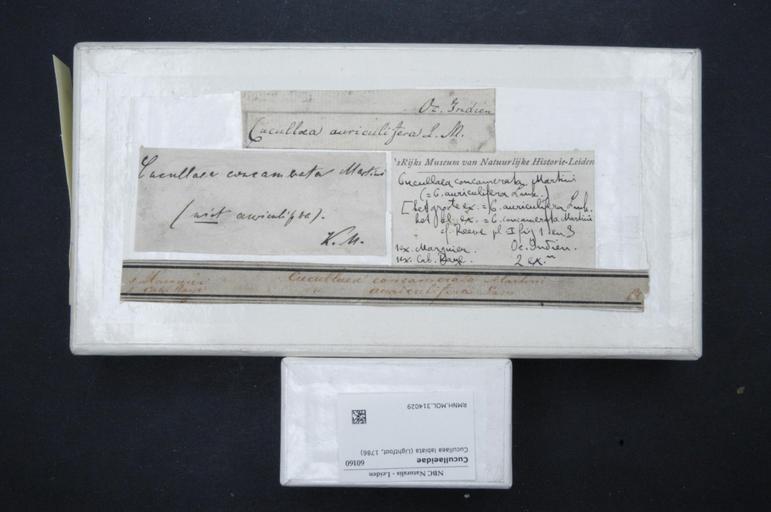 Oc. Indien
Cucullaea auriculifera L. M.
Cucullaea concamerata Martini
(niet auriculifera).
K. M.
's Rijks Museum van Natuurlijke Historie-Leiden
Cucullaea concamerata Martini
(= C. auriculifera Lmk.)
[het grote ex. = C. auriculifera Lmk.
het kl. ex. = C. concamerata Martini
cf. Reeve pl I fig 1 en 3
1 ex. Marquier. Oc. Indien.
1 ex. Cab. 2 ex.
Cucullaea concamerata Martini
auriculifera Lam
NBC Naturalis - Leiden
60160
Cucullaeidae
Cucullaea labiata (Lightfoot, 1786)
RMNH.MOL.314029